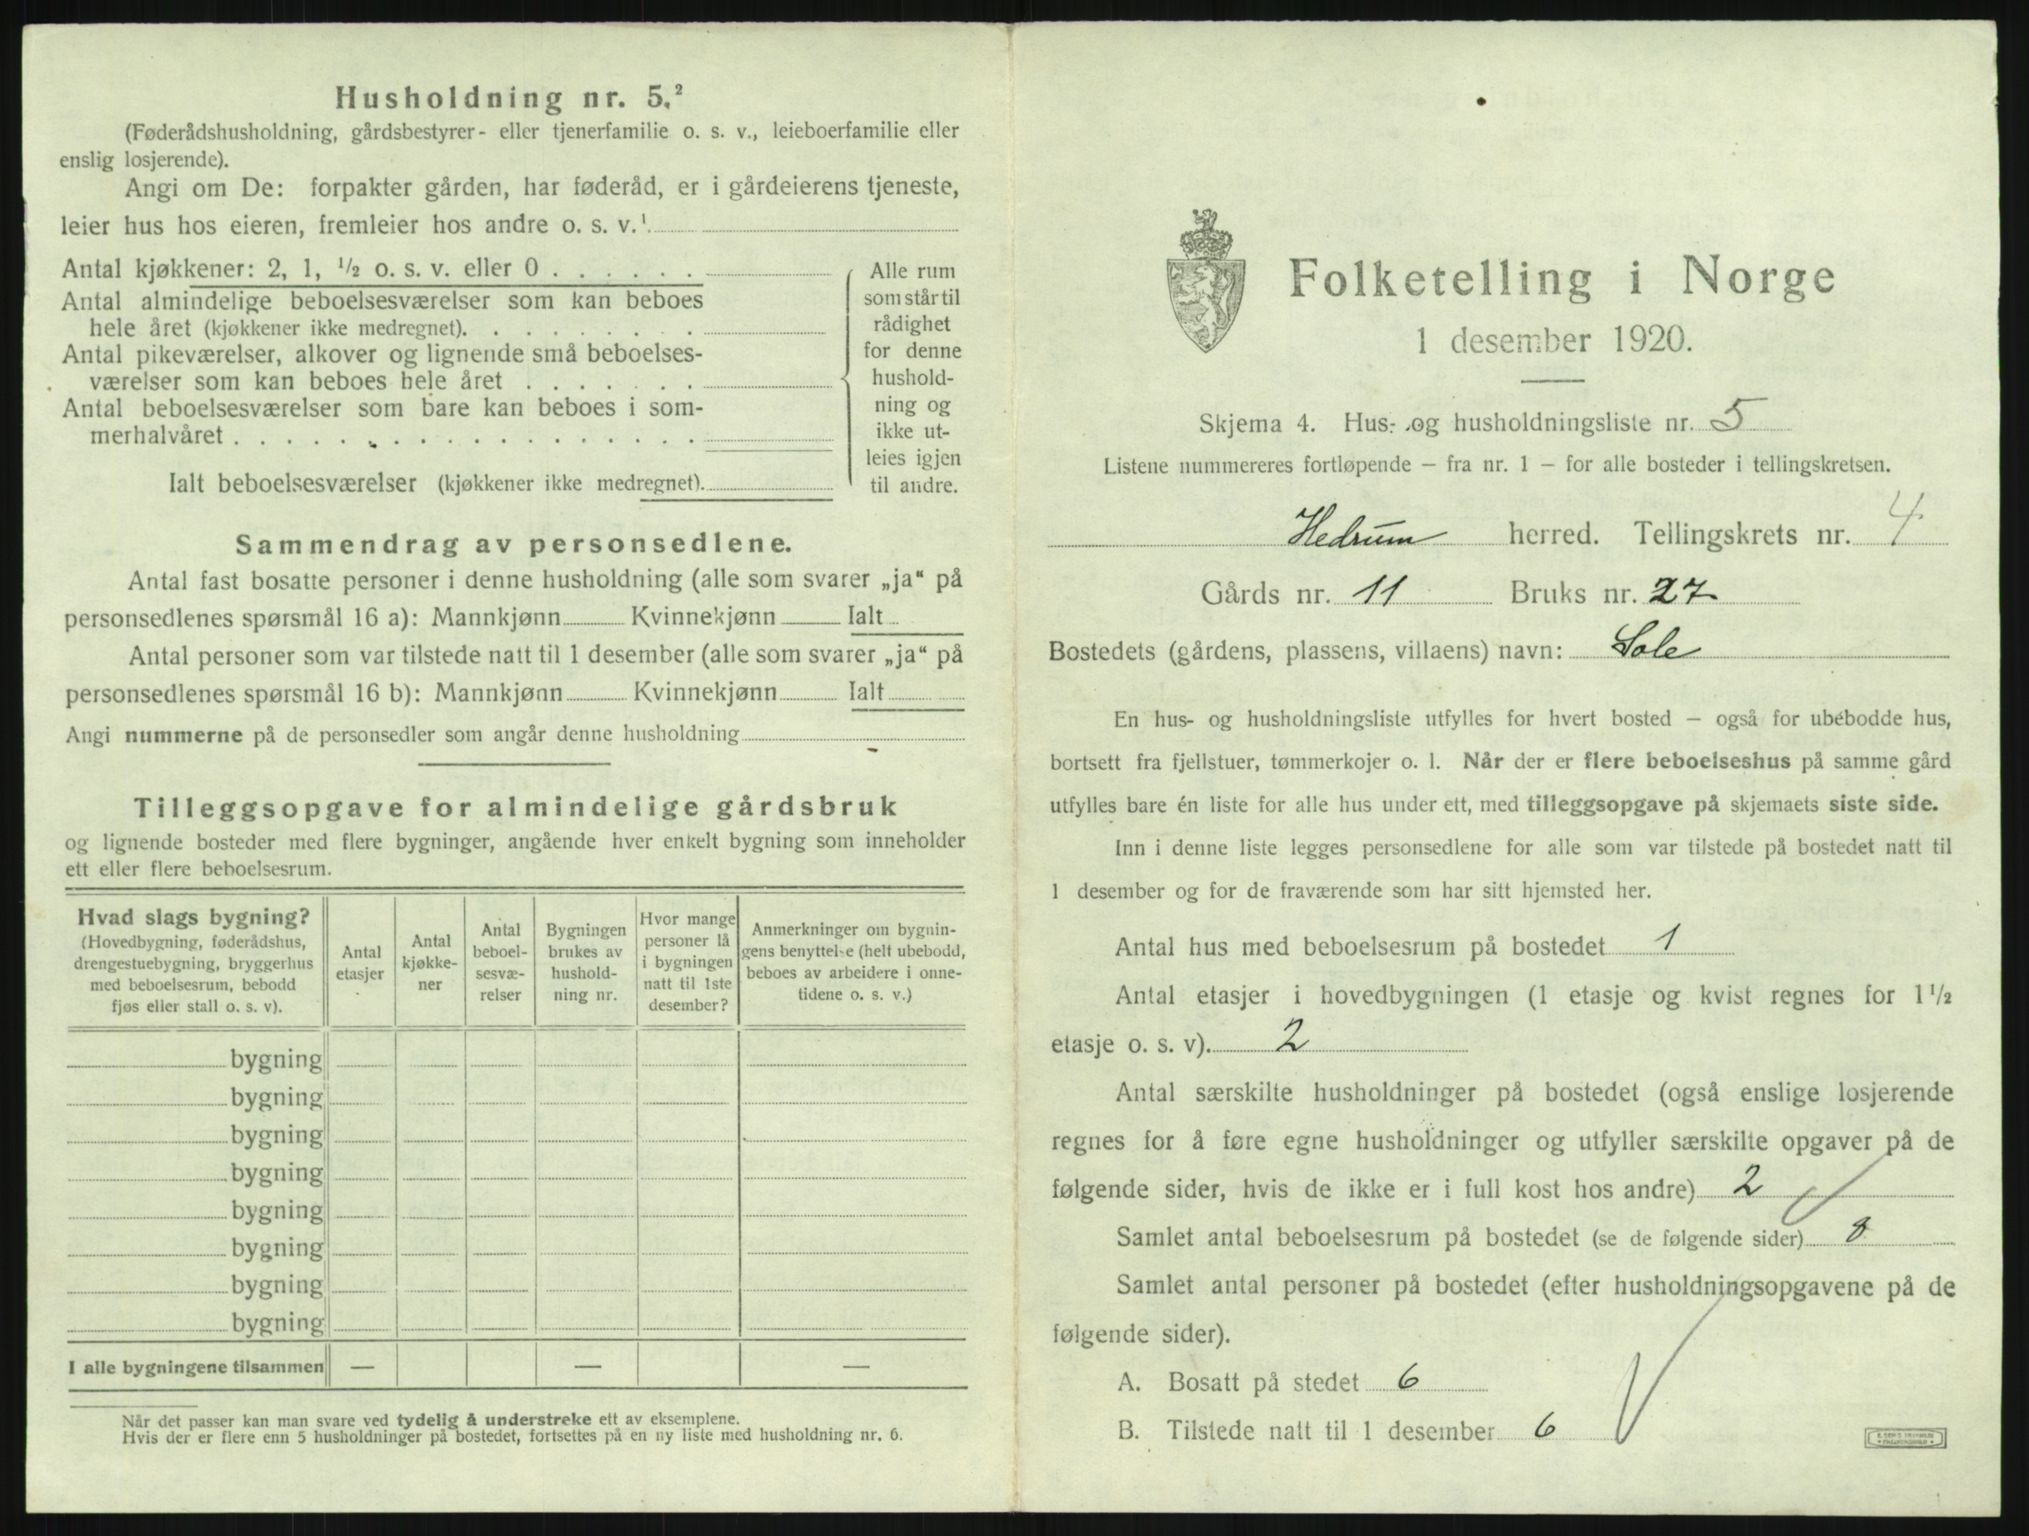 Husholdning nr. 5.²
(Føderådshusholdning, gårdsbestyrer- eller tjenerfamilie o. s. v., leieboerfamilie eller
enslig losjerende).
Angi om De: forpakter gården, har føderåd, er i gårdeierens tjeneste,
leier hus hos eieren, fremleier hos andre o. s. v.¹
Antal kjøkkener: 2, 1, ½ o. s. v. eller 0 . . . . . .
Antal almindelige beboelsesværelser som kan beboes
hele året (kjøkkener ikke medregnet). . . . . . . . .
Antal pikeværelser, alkover og lignende små beboelses-
værelser som kan beboes hele året . . . . . . .
Antal beboelsesværelser som bare kan beboes i som-
merhalvåret . . . . . . . . . . . . . . . . . .
Ialt beboelsesværelser (kjøkkener ikke medregnet).
Alle rum
som står til
rådighet
for denne
hushold-
ning og
ikke ut-
leies igjen
til andre.
Sammendrag av personsedlene.
Antal fast bosatte personer i denne husholdning (alle som svarer „ja“ på
personsedlenes spørsmål 16 a): Mannkjønn Kvinnekjønn Ialt
Antal personer som var tilstede natt til 1 desember (alle som svarer „ja“ på
personsedlenes spørsmål 16 b): Mannkjønn Kvinnekjønn Ialt
Angi nummerne på de personsedler som angår denne husholdning
Tilleggsopgave for almindelige gårdsbruk
og lignende bosteder med flere bygninger, angående hver enkelt bygning som inneholder
ett eller flere beboelsesrum.
Hvad slags bygning?
(Hovedbygning, føderådshus,
drengestuebygning, bryggerhus
med beboelsesrum, bebodd
fjøs eller stall o. s. v).
Antal
etasjer
Antal
kjøkke-
ner
Antal
beboel-
sesvæ-
relser
Bygningen
brukes av
hushold-
ning nr.
Hvor mange
personer lå
i bygningen
natt til 1ste
desember?
Anmerkninger om bygnin-
gens benyttelse (helt ubebodd,
beboes av arbeidere i onne-
tidene o. s. v.)
bygning
bygning
bygning
bygning
bygning
bygning
bygning
bygning
I alle bygningene tilsammen — — —
Når det passer kan man svare ved tydelig å understreke ett av eksemplene.
Hvis der er flere enn 5 husholdninger på bostedet, fortsettes på en ny liste med husholdning nr. 6.
Folketelling i Norge
1 desember 1920.
Skjema 4. Hus- og husholdningsliste nr. 5
Listene nummereres fortløpende – fra nr. 1 – for alle bosteder i tellingskretsen.
Hedrum herred. Tellingskrets nr. 4
Gårds nr. 11 Bruks nr. 27
Bostedets (gårdens, plassens, villaens) navn: Sole
En hus- og husholdningsliste utfylles for hvert bosted – også for ubebodde hus,
bortsett fra fjellstuer, tømmerkojer o. l. Når der er flere beboelseshus på samme gård
utfylles bare én liste for alle hus under ett, med tilleggsopgave på skjemaets siste side.
Inn i denne liste legges personsedlene for alle som var tilstede på bostedet natt til
1 desember og for de fraværende som har sitt hjemsted her.
Antal hus med beboelsesrum på bostedet 1
Antal etasjer i hovedbygningen (1 etasje og kvist regnes for 1½
etasje o. s. v). 2
Antal særskilte husholdninger på bostedet (også enslige losjerende
regnes for å føre egne husholdninger og utfyller særskilte opgaver på de
følgende sider, hvis de ikke er i full kost hos andre) 2
Samlet antal beboelsesrum på bostedet (se de følgende sider) 8
Samlet antal personer på bostedet (efter husholdningsopgavene på de
følgende sider).
A. Bosatt på stedet 6
B. Tilstede natt til 1 desember 6